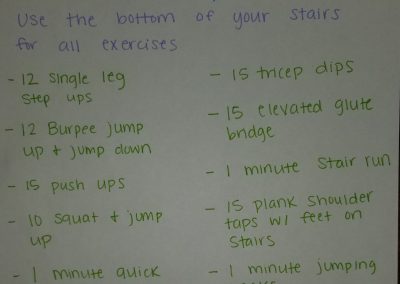 Use the bottom of your stairs
for all exercises
- 12 single leg
step ups
- 12 Burpee jump
up + jump down
- 15 push ups
- 10 squat + jump
up
- 1 minute quick
- 15 tricep dips
- 15 elevated glute
bridge
- 1 minute stair run
- 15 plank shoulder
taps w/ feet on
stairs
- 1 minute jumping